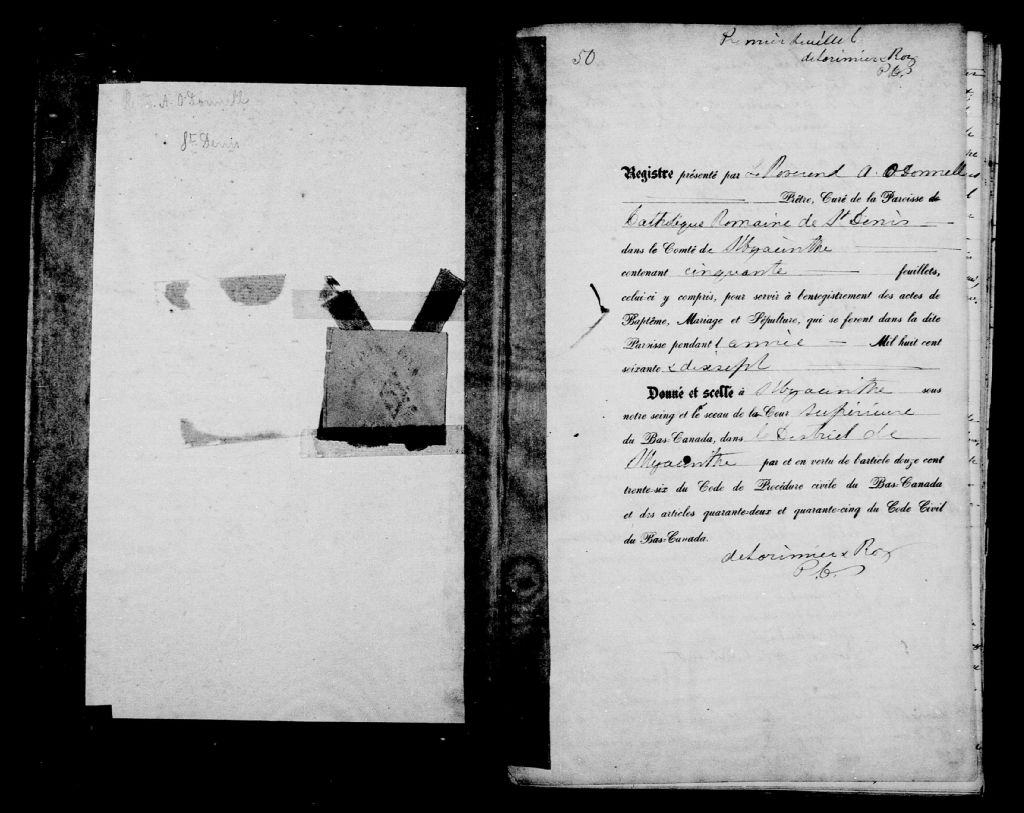 A. O'Donnell
St Denis
50
Premier feuillet
deLorimier & Roy
P.C.S.
Registre présenté par Le Reverend A. O'Donnell
Prêtre, Curé de la Paroisse de
Catholique Romaine de St Denis
dans le Comté de St Hyacinthe
contenant cinquante feuillets,
celui-ci y compris, pour servir à l'enregistrement des actes de
Baptême, Mariage et Sépulture, qui se feront dans la dite
Paroisse pendant l'année Mil huit cent
soixante & dixsept
Donné et scellé à St Hyacinthe sous
notre seing et le sceau de la Cour Supérieure
du Bas-Canada, dans le District de
St Hyacinthe par et en vertu de l'article douze cent
trente-six du Code de Procédure civile du Bas-Canada
et des articles quarante-deux et quarante-cinq du Code Civil
du Bas-Canada.
deLorimier & Roy
P.C.S.